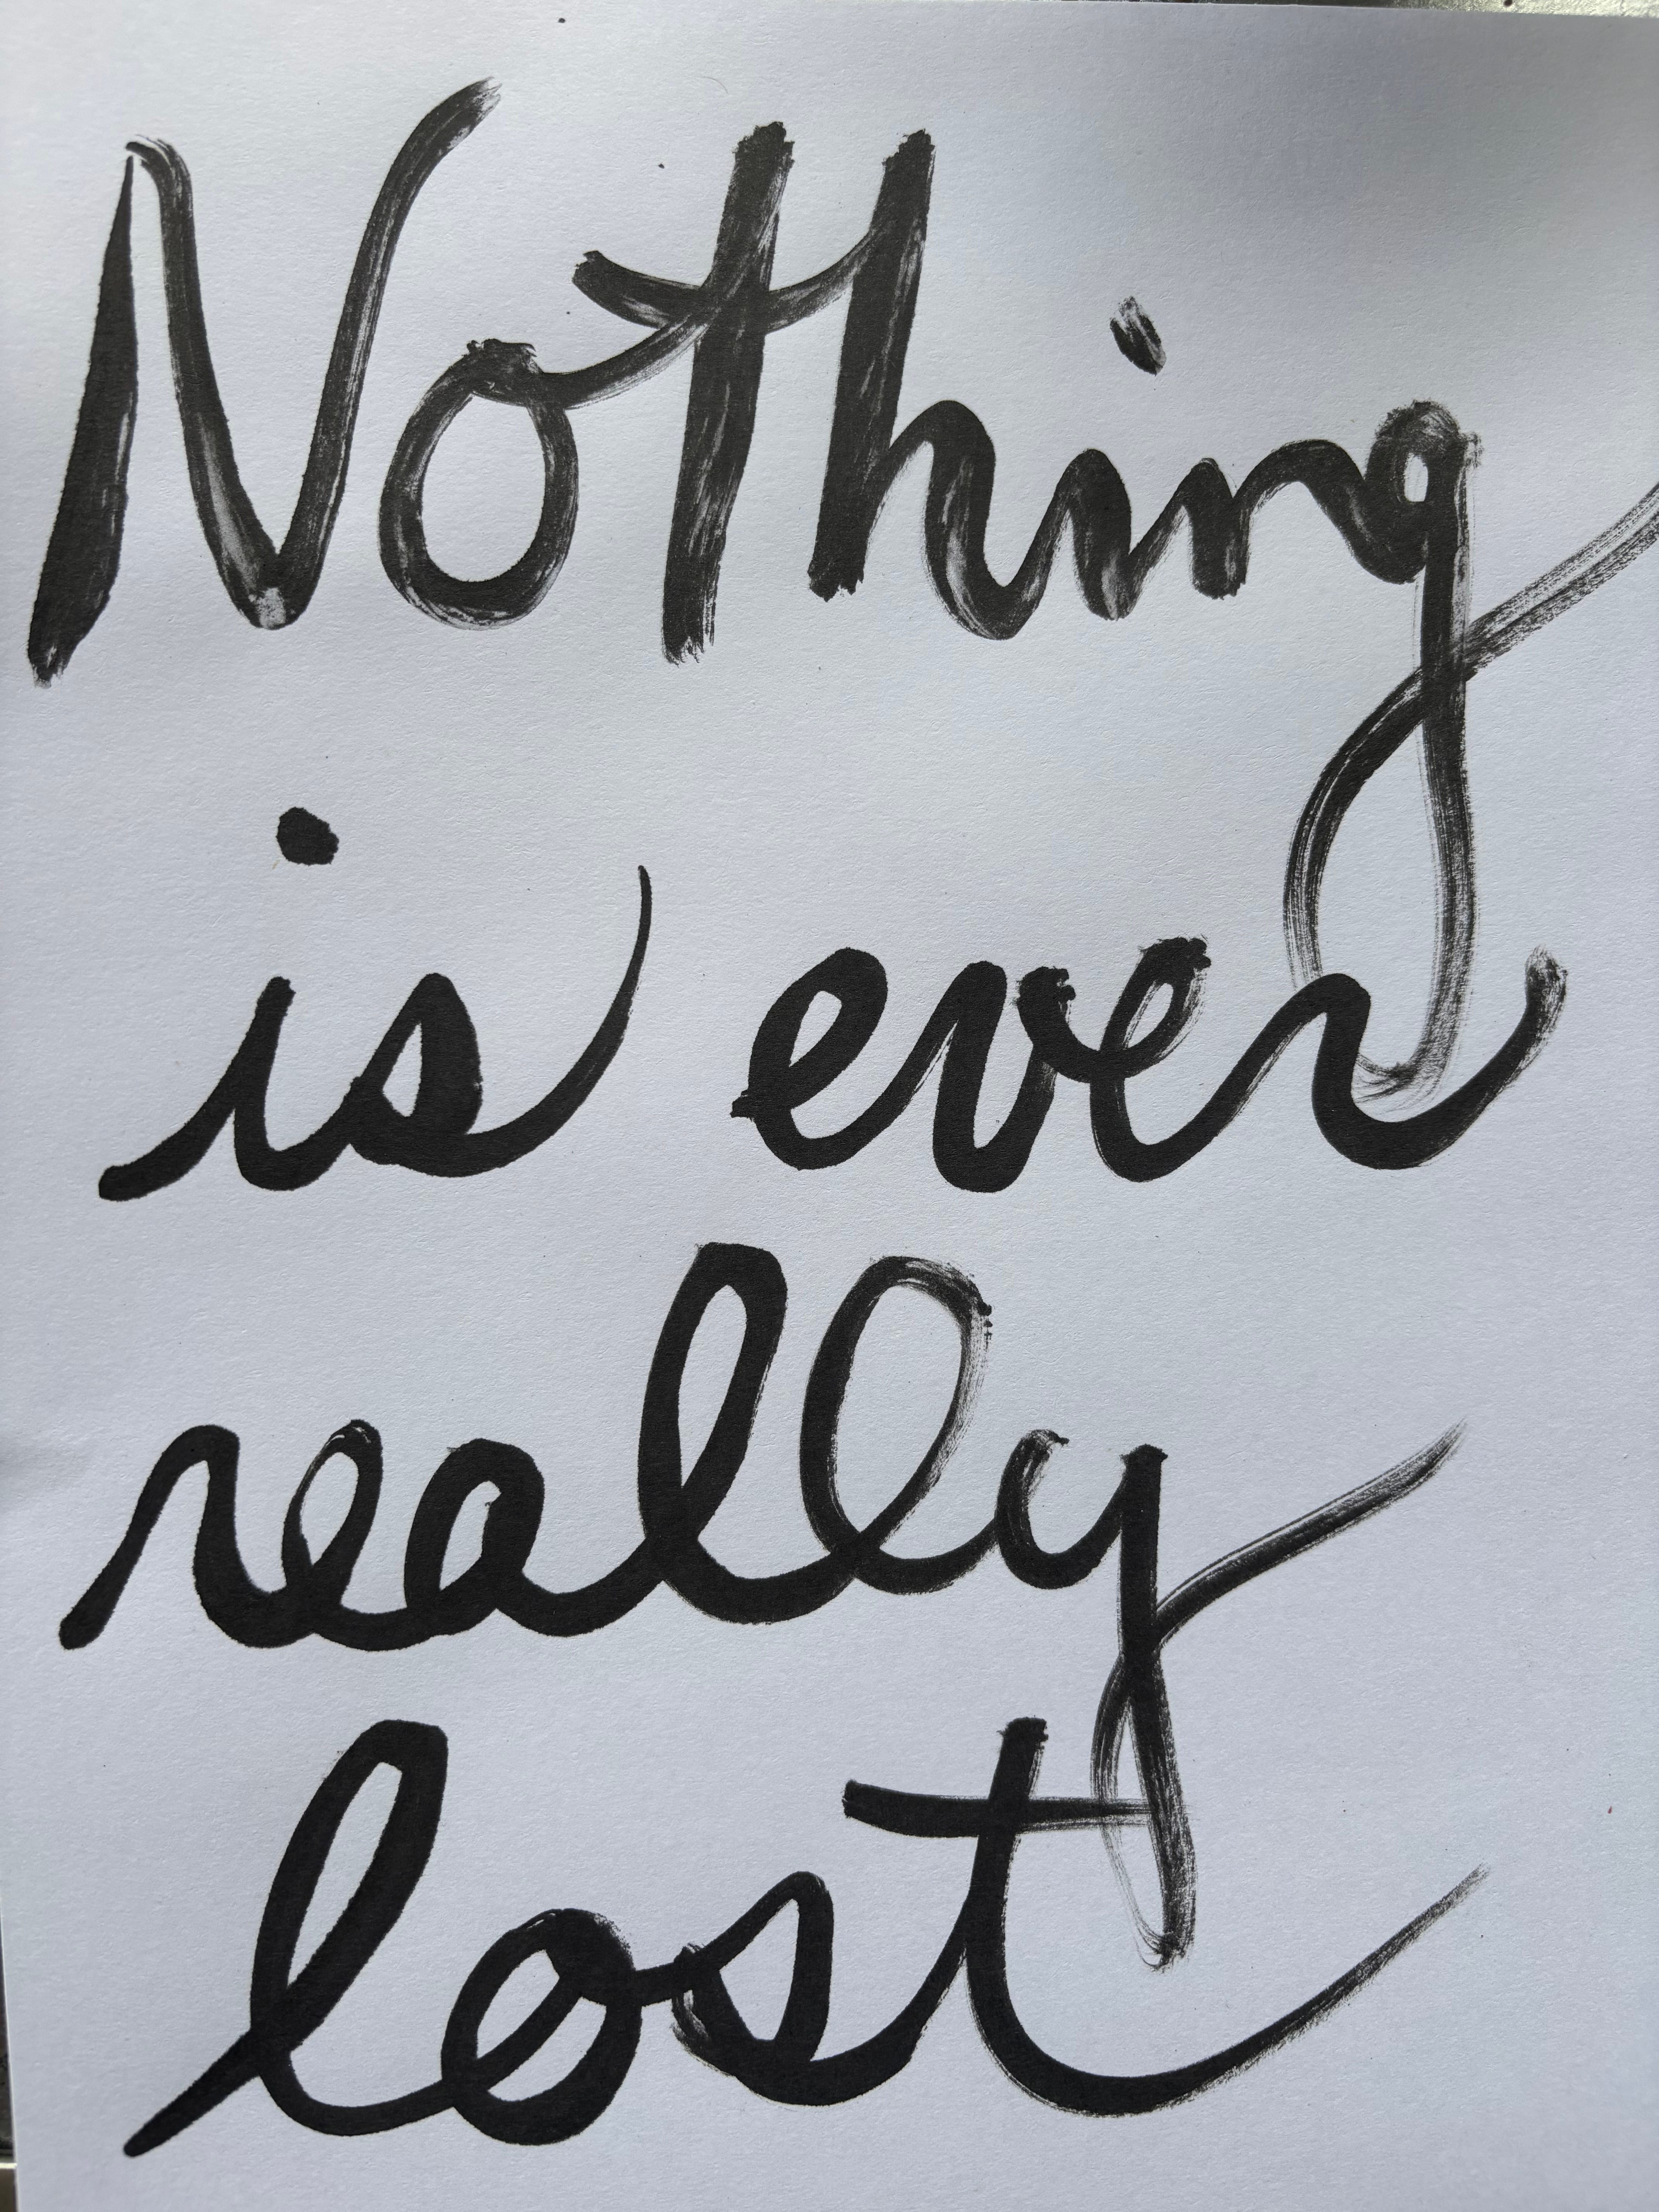 Nothing
is ever
really
lost